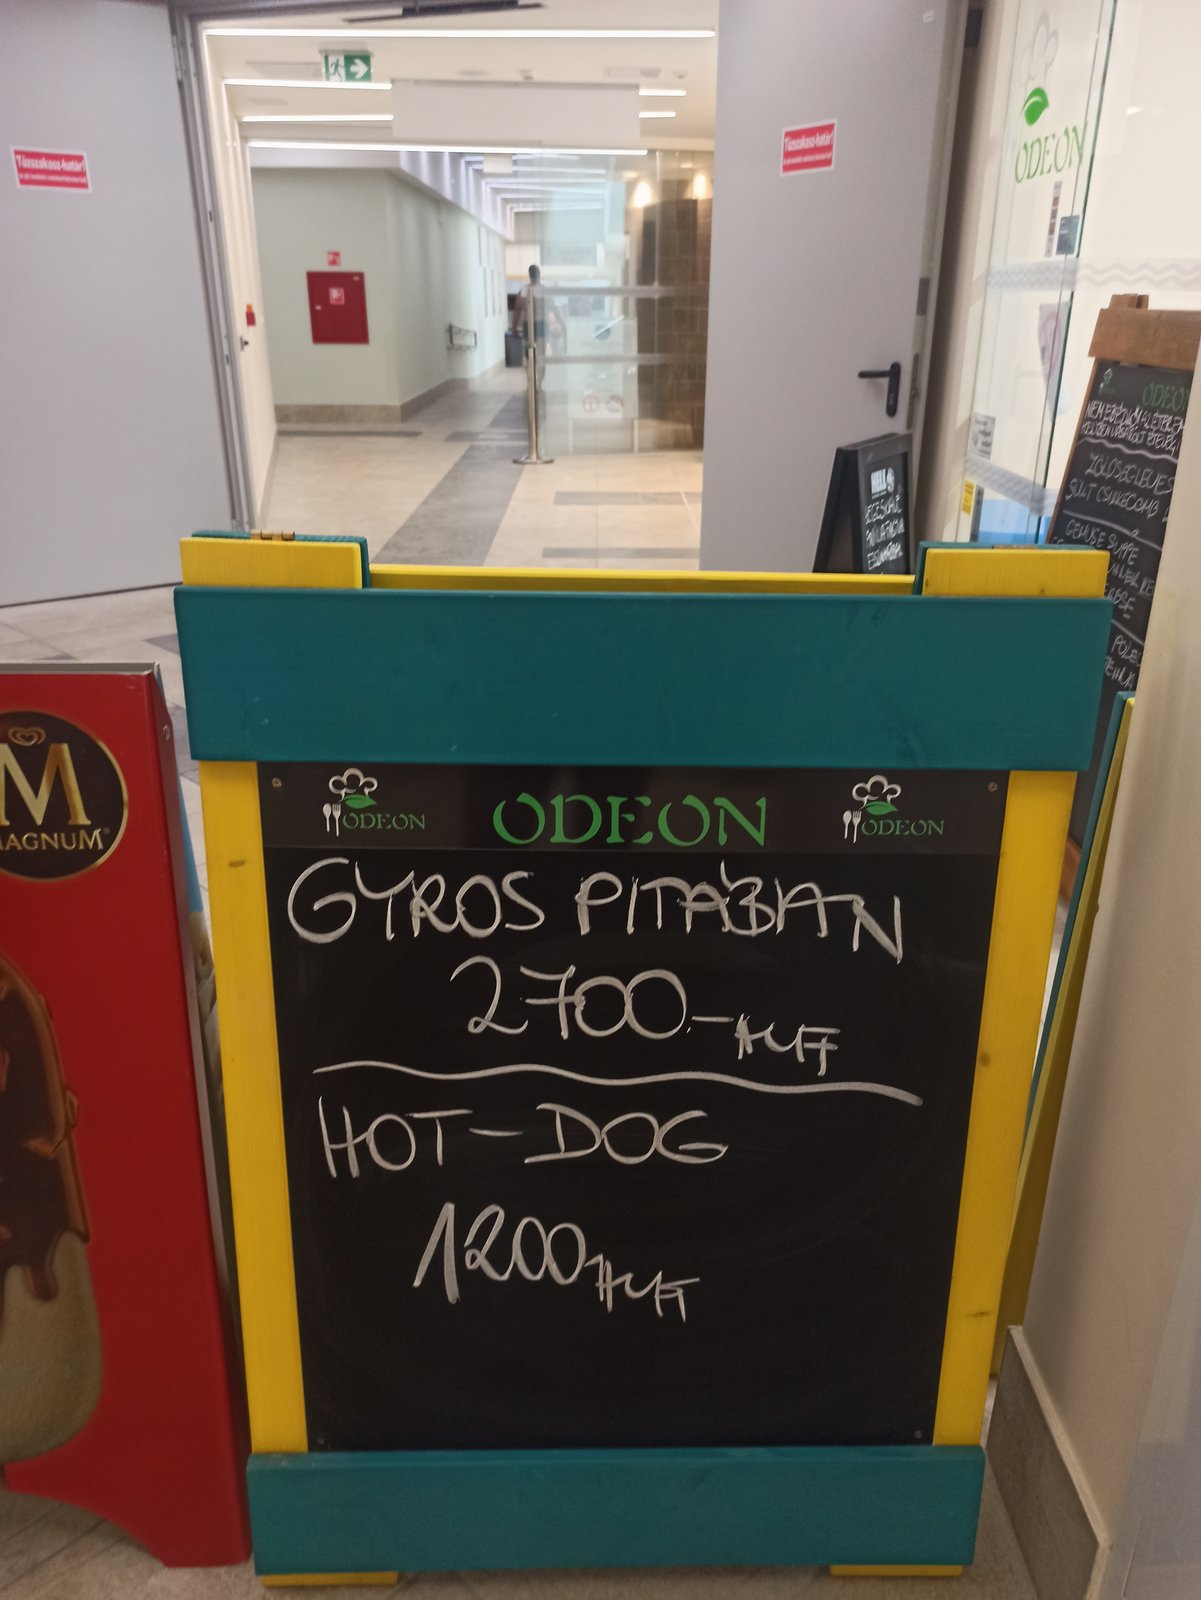 Tűzszakasz-határ!
Tűzszakasz-határ!
ODEON
ODEON
M
MAGNUM
ODEON
ODEON
ODEON
GYROS PITÁBAN
2700.-HUF
HOT-DOG
1200HUF
ZÖLDSÉGLEVES
SÜLT CSIRKECOMB
GEMÜSE SUPPE